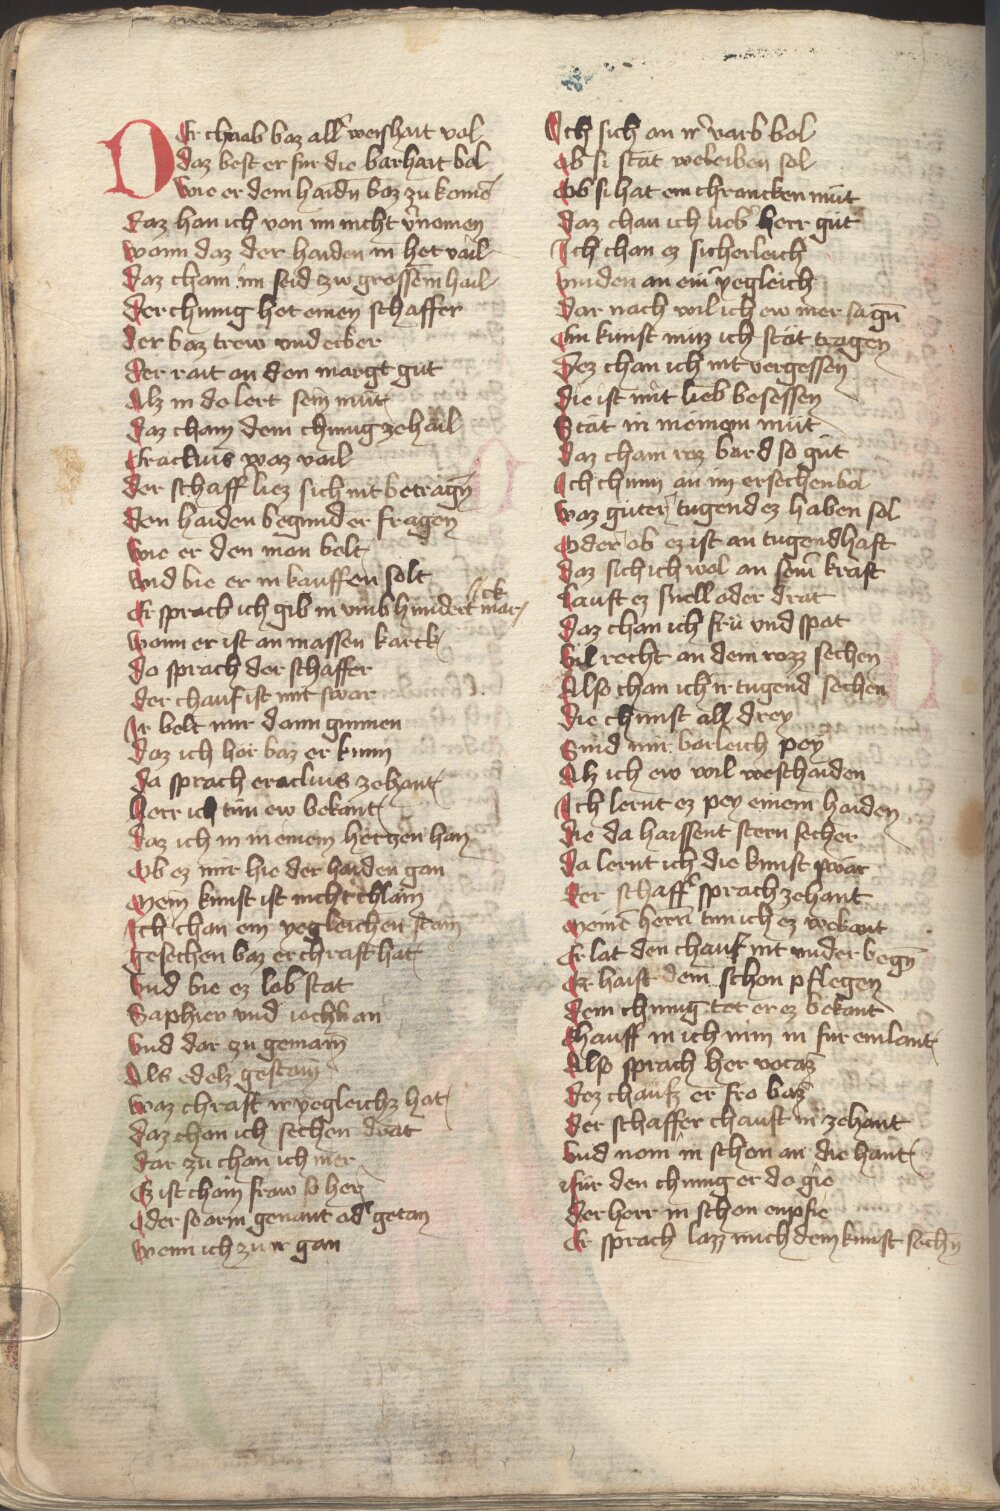 Der chnab baz all weishait vol
daz best er fur die barhait bol
wie er dem haidn baz zu kome
daz han ich von im nicht vnomen
wann daz der haiden in het vail
daz cham im seid zw grossem hail
der chunig het einen schaffer
der baz trew vnd erber
der rait an den margt gut
Alz in do lert sein mut
daz cham dem chunig ze hail
Eraclius waz vail
der schaff liez sich nit betragn
den haiden begund er fragen
wie er den man belt
vnd bie er in kauffen solt
Er sprach ich gib in vmb hundert marck
wann er ist an massen karck
do sprach der schaffer
der chauf ist mit swar
Ir belt mir dann gunnen
daz ich hör baz er kunn
da sprach eraclius zehant
herr ich tün ew bekant
daz ich in meinem hertzen han
Ob ez mir hie der haiden gan
mein kunst ist nicht chlain
Ich chan ein yegleichen stain
gesechen baz er chraft hat
vnd bie ez lob stat
Saphier vnd iochban
vnd dar zu gemain
Als edelz gestain
waz chraft ir yegleichz hat
daz chan ich sechen drat
dar zu chan ich mer
Ez ist chain fraw so her
Oder so arm genant od getan
wenn ich zu ir gan
Ich sich an ir varb bol
Ob si stät weleiben sol
Ob si hat ein chrancken mut
daz chan ich lieb herr güt
Ich chan ez sicherleich
vinden an eim yegleich
dar nach wil ich ew mer sagn
Ein kunst muz ich stät tragen
Dez chan ich nit vergessen
die ist mit lieb besessen
Stät in meinem mut
daz cham roz bard so güt
Ich chunn an im ersechen bol
waz guter tugend ez haben sol
Oder ob ez ist an tugendhaft
daz sich ich wol an seim kraft
Lauft ez snell oder drat
daz chan ich frü vnd spat
vil recht an dem rozz sechen
Also chan ich ir tugend sechen
die chunst all drey
Sind mir barleich pey
Alz ich ew wil weschaiden
Ich lernt ez pey einem haiden
die da haissent stern secher
da lernt ich die kunst swär
der schaff sprach zehant
meine herrn tun ich ez wekant
Er lat den chauf nit vnder begn
Er haist dein schon pflegen
dem chunig tet er ez bekant
chauff in ich nim in fur ein lant
Also sprach her vocaz
dez chaufz er fro baz
der schaffer chauft in zehant
vnd nom in schon an die hant
für den chunig er do gie
der herr in schon enpfie
Er sprach lazz mich dein kunst sechn